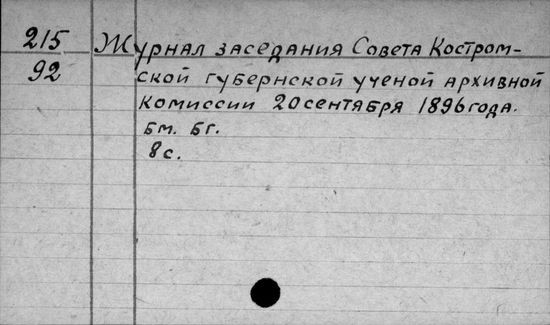 215 Журнал заседания Совета Костром-
92 ской губернской ученой архивной
комиссии 20 сентября 1896 года.
Бм. Бг.
8с.